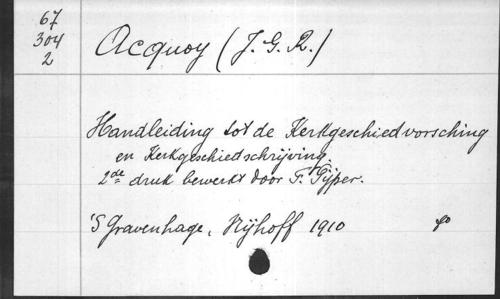 67
304
2
Acquoy (J. G. R.)
Handleiding tot de Kerkgeschiedvorsching
en Kerkgeschiedschrijving.
2de druk bewerkt door F. Pijper.
'S Gravenhage, Nijhoff 1910